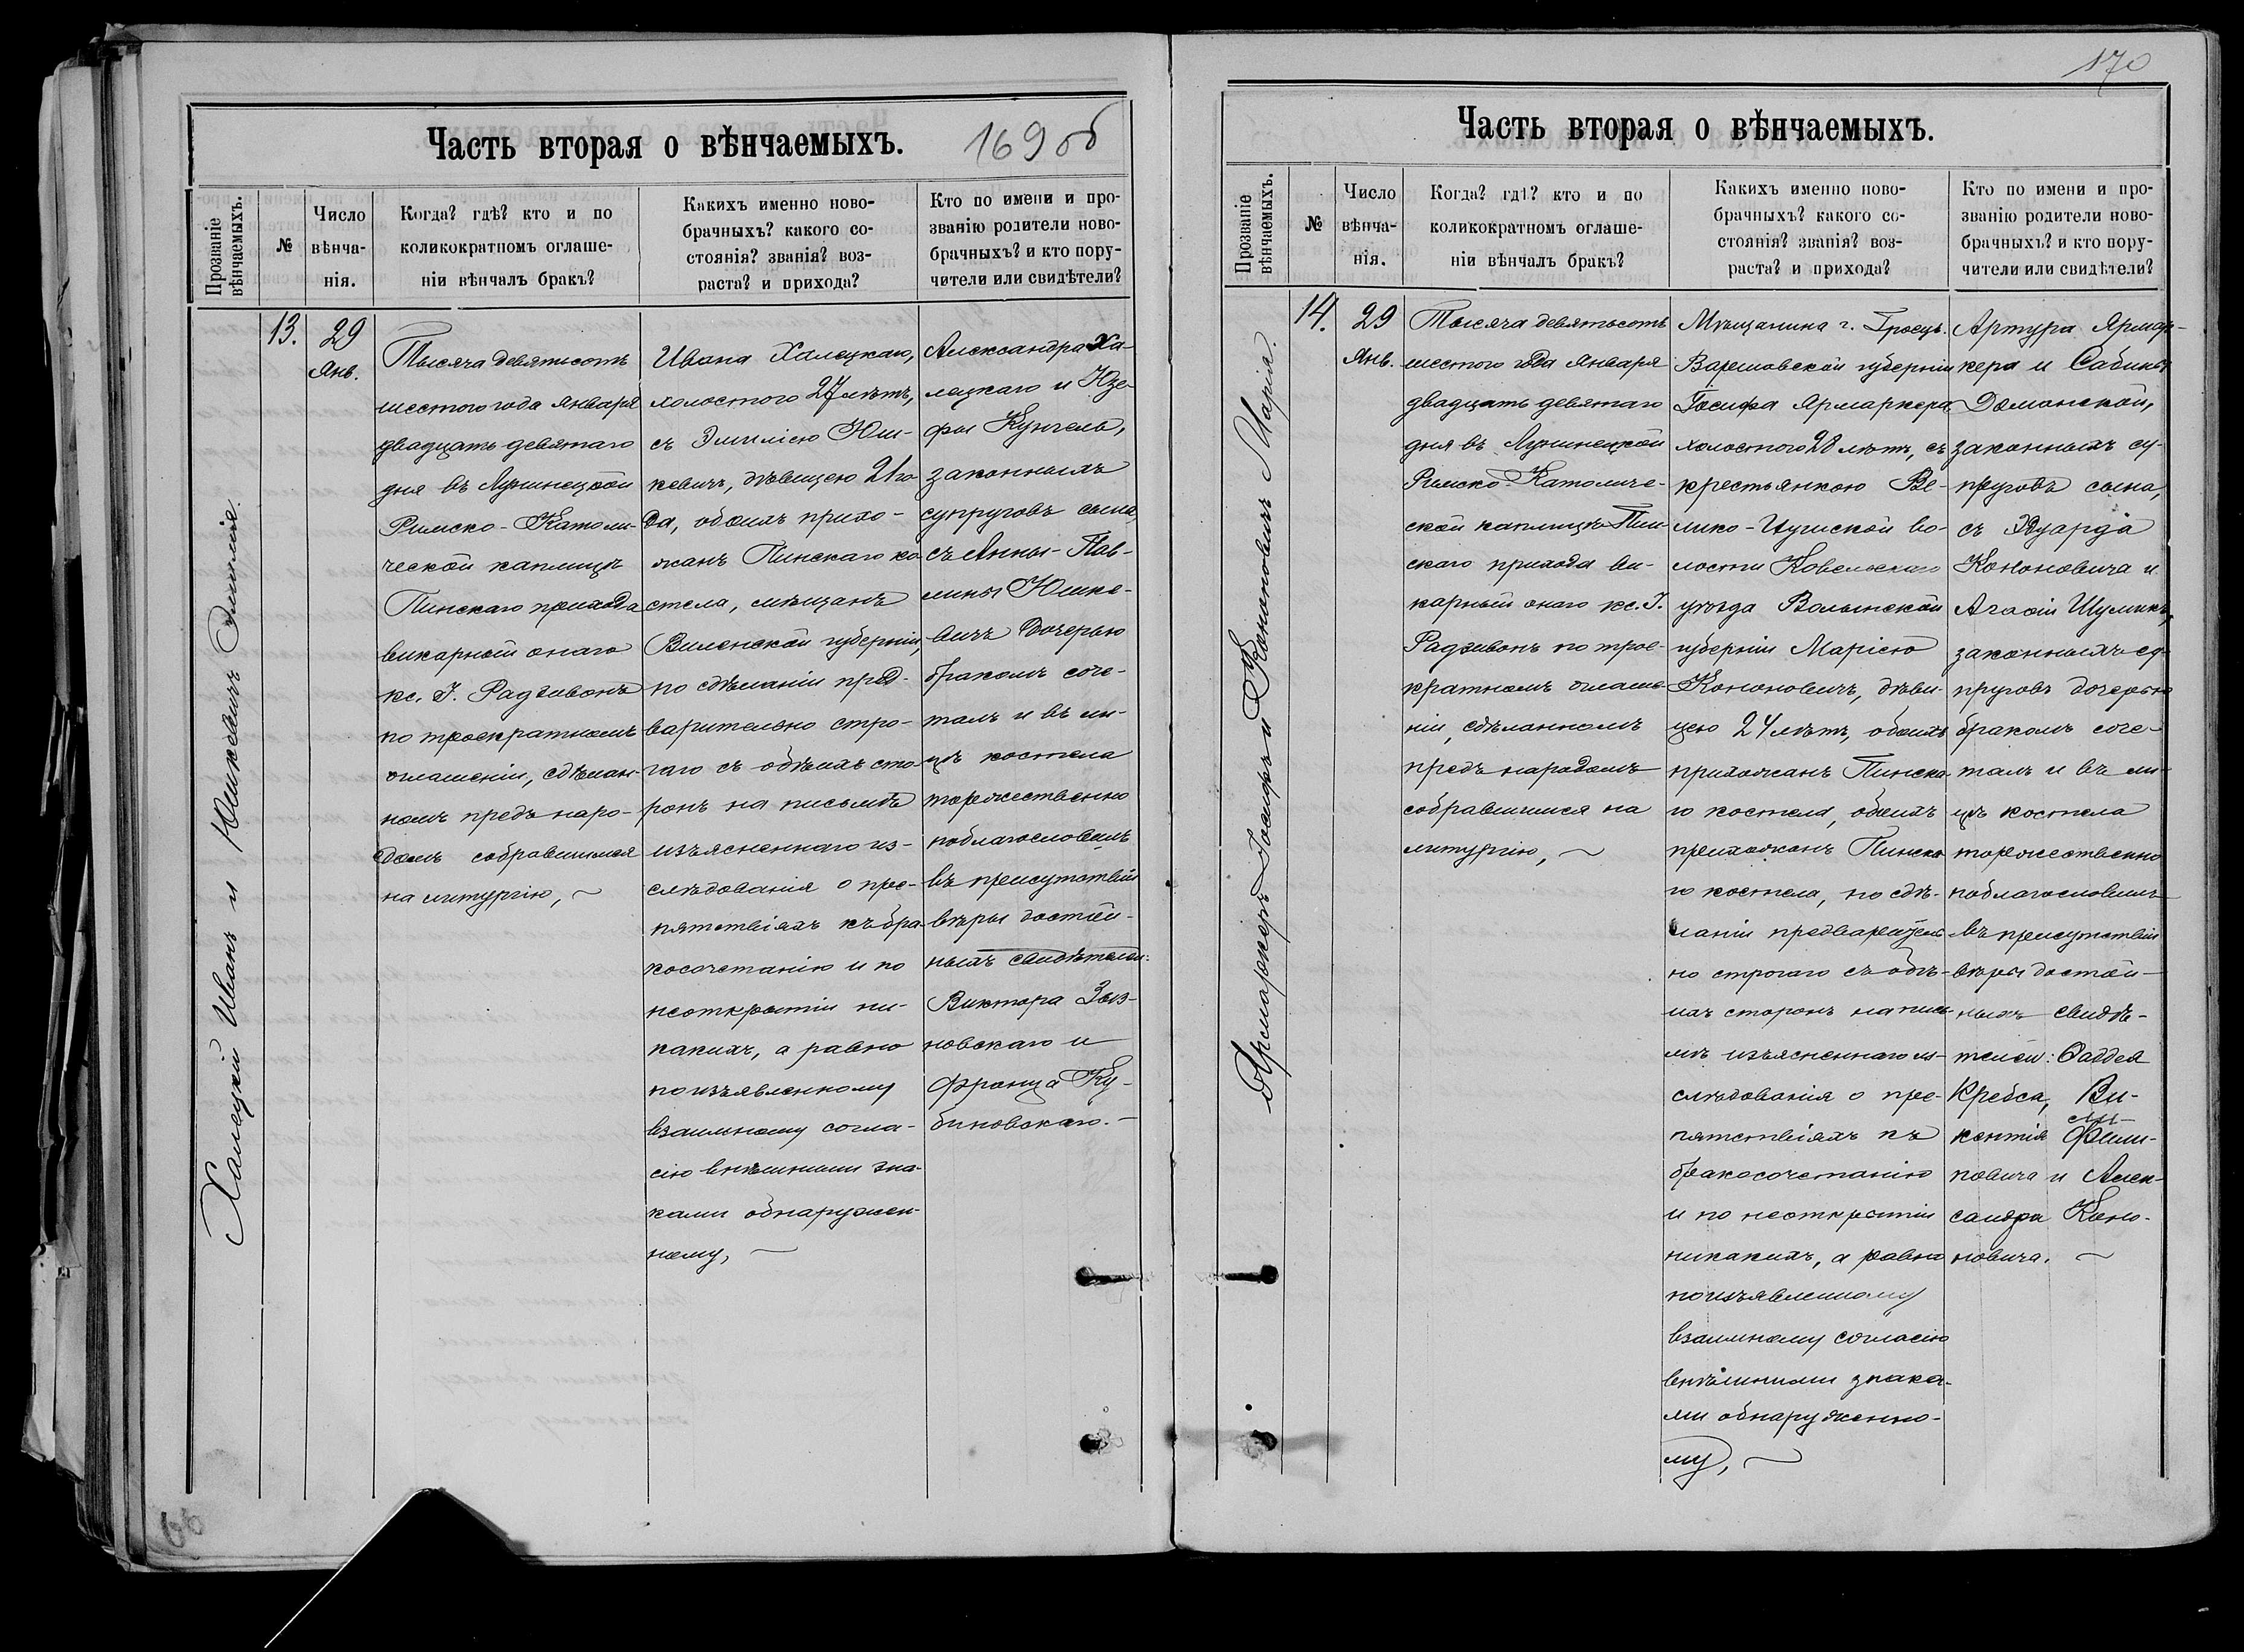 Часть вторая о вѣнчаемыхъ.
169об
Прозваніе
вѣнчаемыхъ.
№
Число
вѣнча-
нія.
Когда? гдѣ? кто и по
коликократномъ оглаше-
ніи вѣнчалъ бракъ?
Какихъ именно ново-
брачныхъ? какого со-
стоянія? званія? воз-
раста? и прихода?
Кто по имени и про-
званію родители ново-
брачныхъ? и кто пору-
чители или свидѣтели?
Халецкій Иванъ и Юшкевичъ Эмилія.
13.
29
Янв.
Тысяча девятьсотъ
шестого года января
двадцать девятаго
дня въ Лунинецкой
Римско-Католи-
ческой каплицѣ
Пинскаго прихода
викарный онаго
кс. І. Радзивонъ
по троекратномъ
оглашеніи, сдѣлан-
номъ предъ наро-
домъ собравшимся
на литургію, ~
Ивана Халецкаго,
холостого 27 лѣтъ,
съ Эмиліею Юш-
кевичъ, дѣвицею 21 го-
да, обоихъ прихо-
жанъ Пинскаго ко-
стела, мѣщанъ
Виленской губерніи,
по сдѣланіи пред-
варительно стро-
гаго съ обѣихъ сто-
ронъ на письмѣ
изъясненнаго из-
слѣдованія о пре-
пятствіяхъ къ бра-
косочетанію и по
неоткрытіи ни-
какихъ, а равно
по изъявленному
взаимному согла-
сію внѣшними зна-
ками обнаружен-
ному, ~
Александра Ха-
лецкаго и Юзе-
фы Кунгель,
законныхъ
супруговъ сына,
съ Анны-Пав-
лины Юшке-
вичъ дочерью
бракомъ соче-
талъ и въ ли-
цѣ костела
торжественно
поблагословилъ
въ присутствіи
вѣры достой-
ныхъ свидѣтелей:
Виктора Зыз-
новскаго и
Франца Ку-
биновскаго. —
170
Часть вторая о вѣнчаемыхъ.
Прозваніе
вѣнчаемыхъ.
№
Число
вѣнча-
нія.
Когда? гдѣ? кто и по
коликократномъ оглаше-
ніи вѣнчалъ бракъ?
Какихъ именно ново-
брачныхъ? какого со-
стоянія? званія? воз-
раста? и прихода?
Кто по имени и про-
званію родители ново-
брачныхъ? и кто пору-
чители или свидѣтели?
Ярмаркеръ Іосифъ и Кононовичъ Марія.
14.
29
Янв.
Тысяча девятьсотъ
шестого года января
двадцать девятаго
дня въ Лунинецкой
Римско-Католиче-
ской каплицѣ Пин-
скаго прихода ви-
карный онаго кс. І.
Радзивонъ по трое-
кратномъ оглаше-
ніи, сдѣланномъ
предъ народомъ
собравшимся на
литургію, ~
Мѣщанина г. Гроецъ
Варшавской губерніи
Іосифа Ярмаркера
холостого 28 лѣтъ, съ
крестьянкою Ве-
лико-Цушской во-
лости Ковельскаго
уѣзда Волынской
губерніи Маріею
Кононовичъ, дѣви-
цею 24 лѣтъ, обоихъ
прихожанъ Пинска-
го костела, обоихъ
прихожанъ Пинска-
го костела, по сдѣ-
ланіи предваритель-
но строгаго съ обѣ-
ихъ сторонъ на пись-
мѣ изъясненнаго из-
слѣдованія о пре-
пятствіяхъ къ
бракосочетанію
и по неоткрытіи
никакихъ, а равно
по изъявленному
взаимному согласію
внѣшними знака-
ми обнаруженно-
му, ~
Артура Ярмар-
кера и Сабины
Доманской,
законныхъ су-
пруговъ сына,
съ Эдуарда
Кононовича и
Агафіи Шуликъ,
законныхъ су-
пруговъ дочерью
бракомъ соче-
талъ и въ ли-
цѣ костела
торжественно
поблагословилъ
въ присутствіи
вѣры достой-
ныхъ свидѣ-
телей: Фаддея
Кребса, Ви-
кентія Фили-
повича и Алек-
сандра Коно-
новича. ~